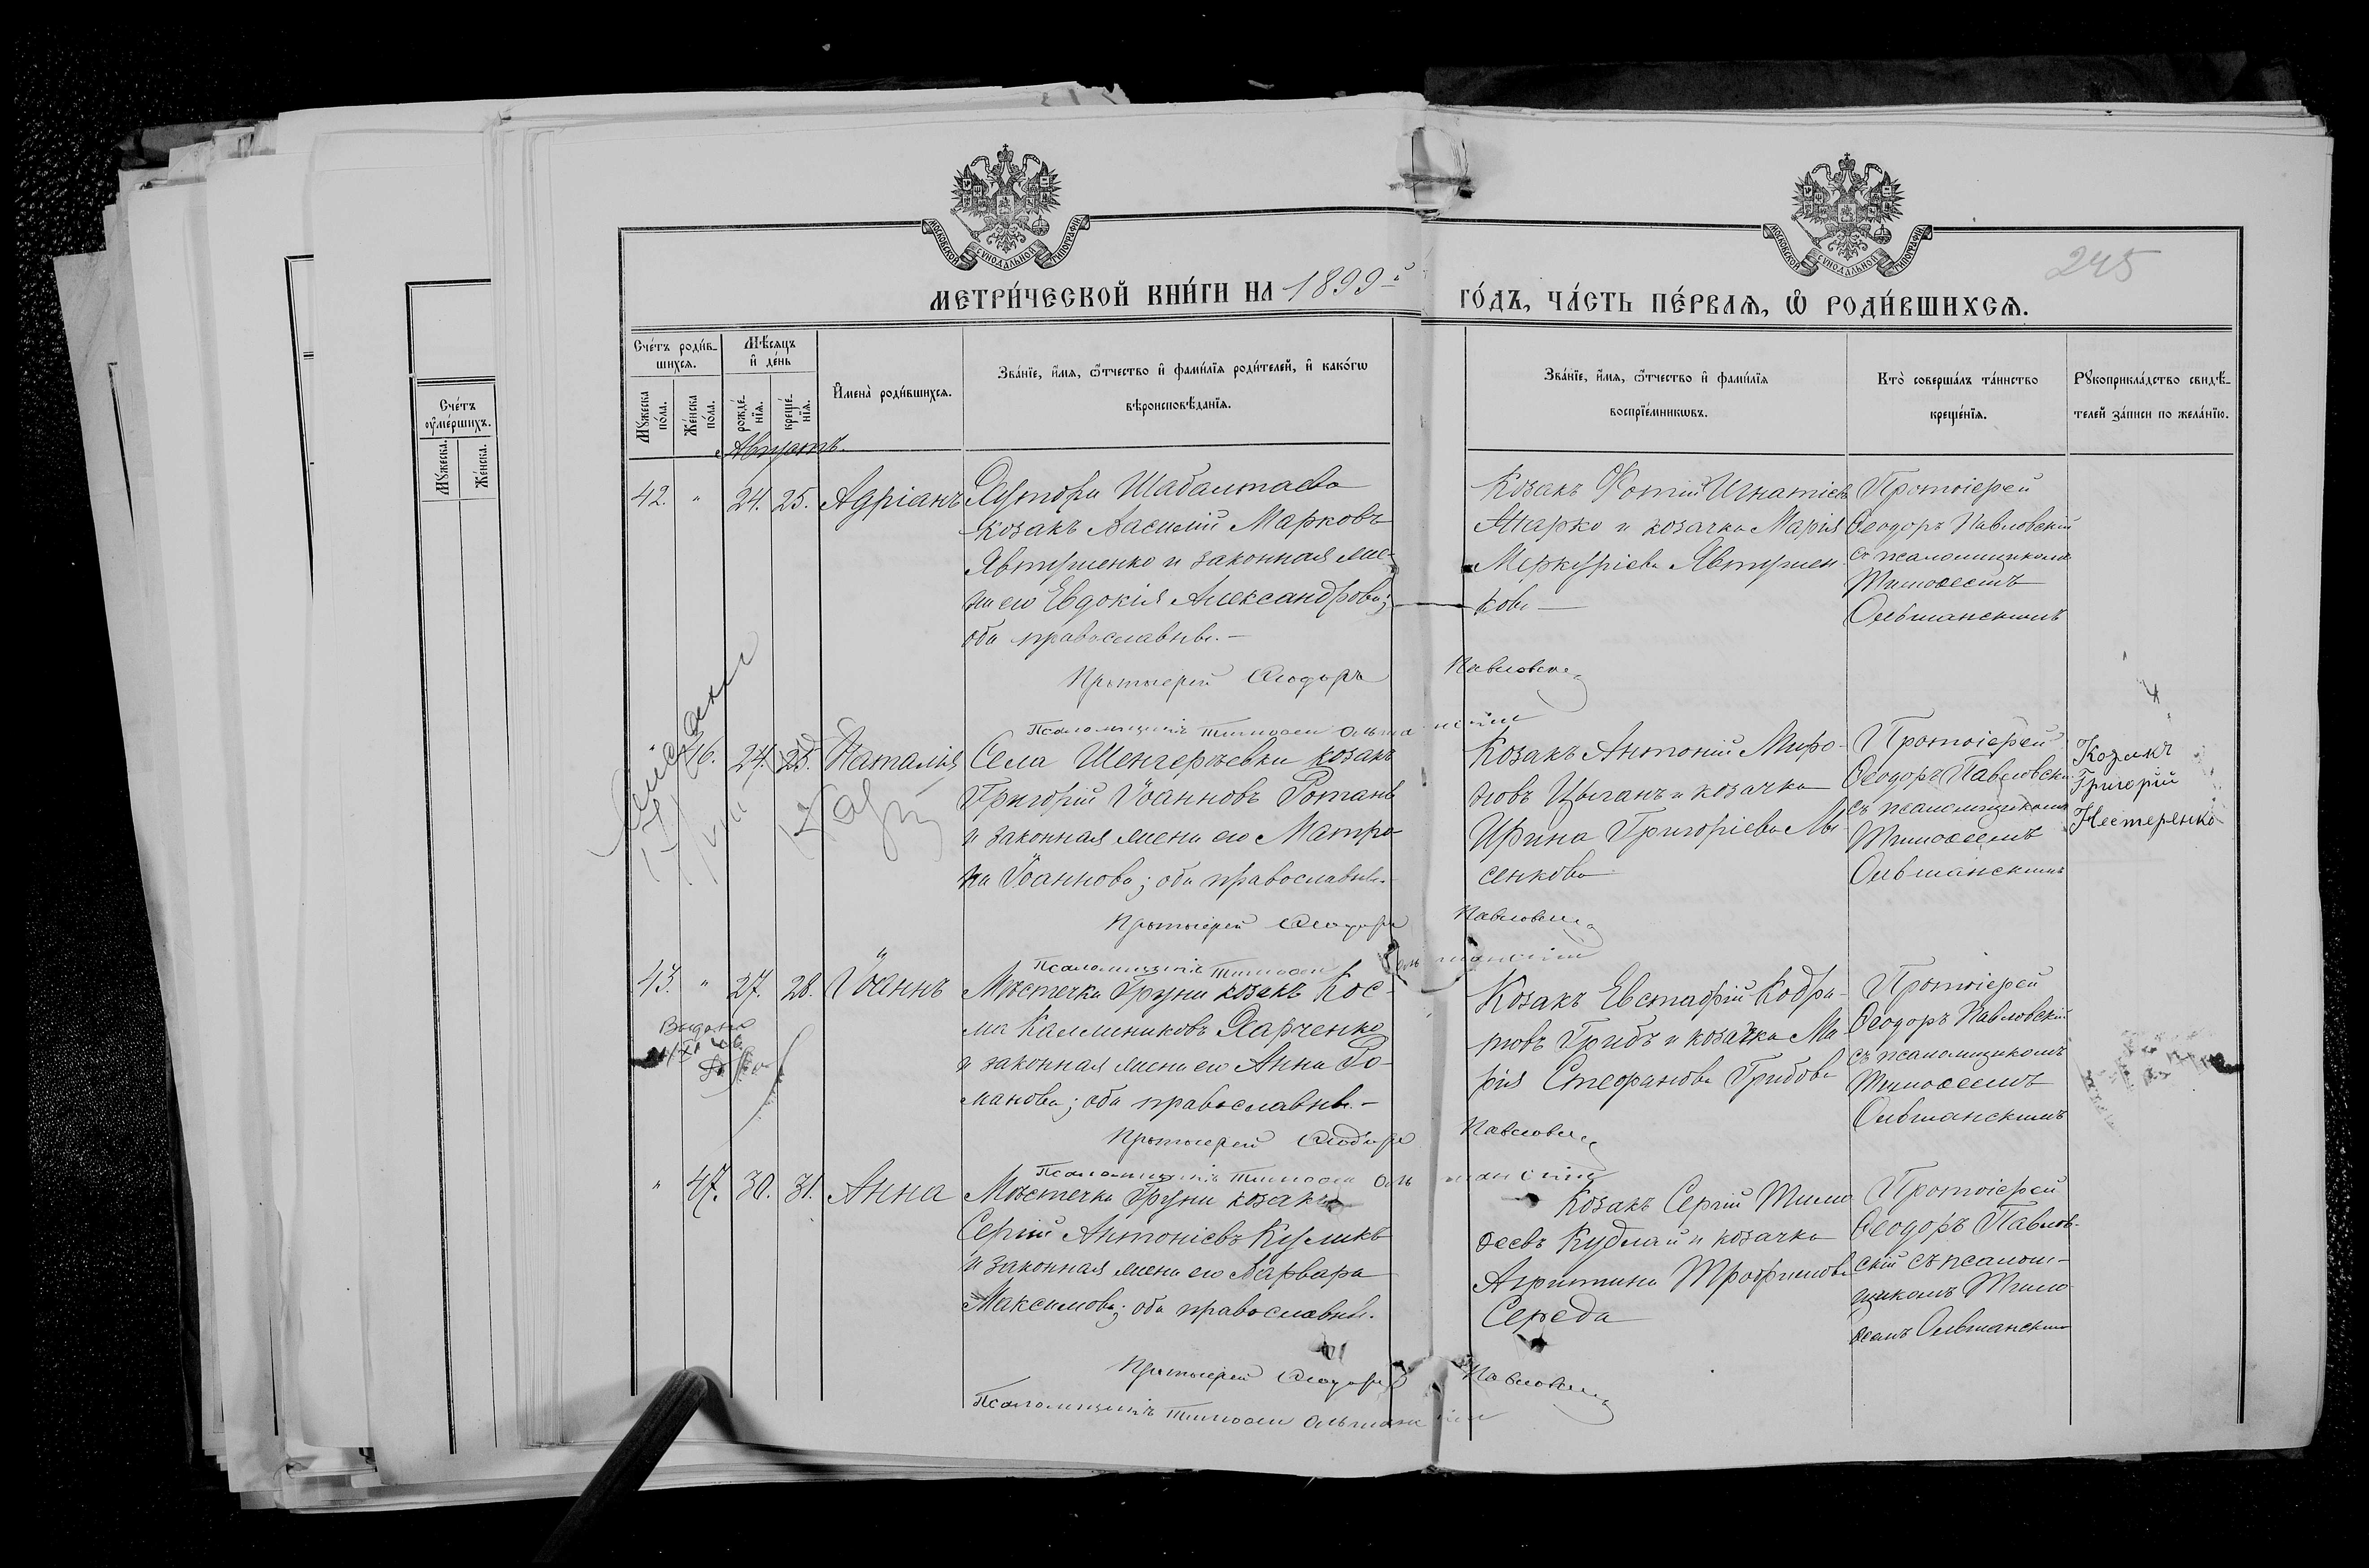 МОСКОВСКОЙ СѴНОДАЛЬНОЙ ТИПОГРАФІИ
МОСКОВСКОЙ СѴНОДАЛЬНОЙ ТИПОГРАФІИ
245
МЕТРИ́ЧЕСКОЙ КНИ́ГИ НА 1899й ГО́ДЪ, ЧА́СТЬ ПЕ́РВАѦ, Ѡ҆ РОДИ́ВШИХСѦ.
Сче́тъ ᲂу҆ме́ршихъ.
Мꙋ́жеска.
Же́нска.
Сче́тъ роди́в-
шихсѧ.
Мꙋ́жеска по́ла.
Же́нска по́ла.
Мѣ́сѧцъ
и҆ де́нь
рожде́нїѧ.
креще́нїѧ.
И҆мена̀ роди́вшихсѧ.
Зва́нїе, и҆́мѧ, ѻ҆́тчество и҆ фами́лїѧ роди́телей, и҆ како́гѡ
вѣроисповѣ́данїѧ.
Зва́нїе, и҆́мѧ, ѻ҆́тчество и҆ фами́лїѧ
воспрїе́мникѡвъ.
Кто̀ соверша́лъ та́инство
креще́нїѧ.
Рꙋкоприкла́дство свидѣ́-
телей за́писи по жела́нїю.
Августъ.
42. " 24. 25. Адріанъ
Хутора Шабалтаева
козакъ Василій Марковъ
Явтушенко и законная же-
на его Евдокія Александрова;
оба православные.
Козакъ Фотій Игнатіевъ
и козачка Марія
Меркуріева Явтушен
кова
Протоіерей
Ѳеодоръ Павловскій
съ псаломщикомъ
Тимоѳеемъ
Ольшанскимъ
Протоіерей Ѳеодоръ Павловскій
Псаломщикъ Тимоѳей Ольшанскій
46. 24. 25. Наталія
Села Шенгеръевки козакъ
Григорій Іоанновъ Ротань
и законная жена его Матро-
на Іоаннова; оба православные.
Козакъ Антоній Миро-
новъ Цыганъ и козачка
Ирина Григоріева Мы
сенкова
Протоіерей
Ѳеодоръ Павловскій
съ псаломщикомъ
Тимоѳеемъ
Ольшанскимъ
Козакъ
Григорій
Нестеренко
Протоіерей Ѳеодоръ Павловскій
Псаломщикъ Тимоѳей Ольшанскій
43. " 27. 28. Іоаннъ
Выдана
Мѣстечка Груни козакъ Кос-
ма Каллиниковъ Харченко
и законная жена его Анна Ро-
манова; оба православные.
Козакъ Евстафій Кодра-
товъ Грибъ и козачка Ма-
рія Стефанова Грибова
Протоіерей
Ѳеодоръ Павловскій
съ псаломщикомъ
Тимоѳеемъ
Ольшанскимъ
Протоіерей Ѳеодоръ Павловскій
Псаломщикъ Тимоѳей Ольшанскій
" 47. 30. 31. Анна
Мѣстечка Груни козакъ
Сергій Антоніевъ Куликъ
и законная жена его Варвара
Максимова; оба православные.
Козакъ Сергій Тимо
ѳеевъ Кудлай и козачка
Агрипина Трофимова
Середа
Протоіерей
Ѳеодоръ Павлов-
скій съ псалом-
щикомъ Тимо-
ѳеемъ Ольшанскимъ
Протоіерей Ѳеодоръ Павловскій
Псаломщикъ Тимоѳей Ольшанскій